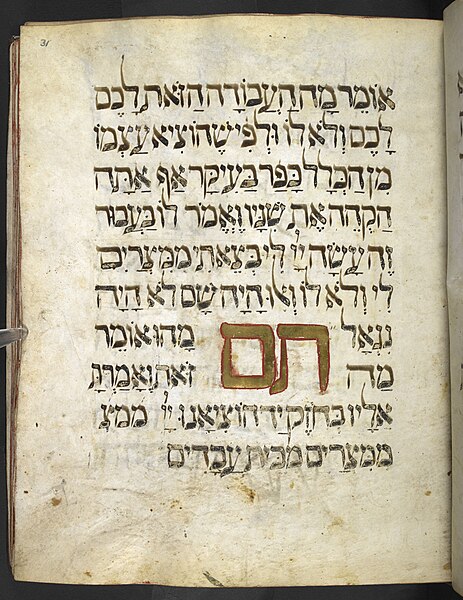 31
אומר מה העבודה הזאת לכם
לכם ולא לו ולפי שהוציא עצמו
מן הכלל כפר בעיקר אף אתה
הקהה את שניו ואמר לו בעבור
זה עשה יי לי בצאתי ממצרים
לי ולא לו ואלו היה שם לא היה
נגאל תם מהו אומר
מה זאת ואמרת
אליו בחוזק יד הוציאנו יי ממצ
ממצרים מבית עבדים